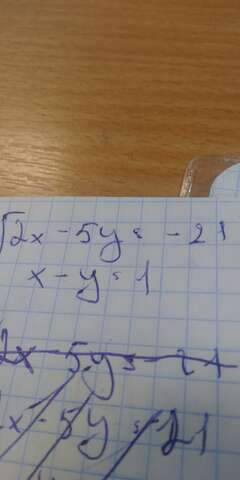 2x - 5y = -21
x - y = 1
2x - 5y = -21
2x - 5y = -21